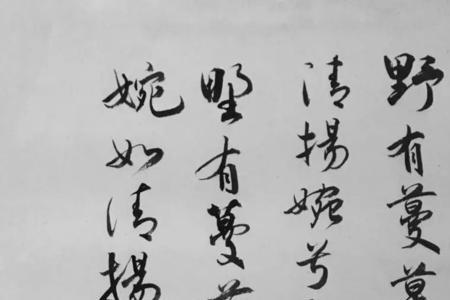 野有蔓草
清揚婉兮
野有蔓草
婉如清揚